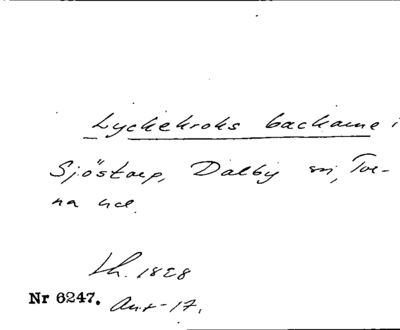 Lyckekroks backarne i
Sjöstorp, Dalby sn, Tor-
na hd.
Lh. 1828
Nr 6247. Ant-17.